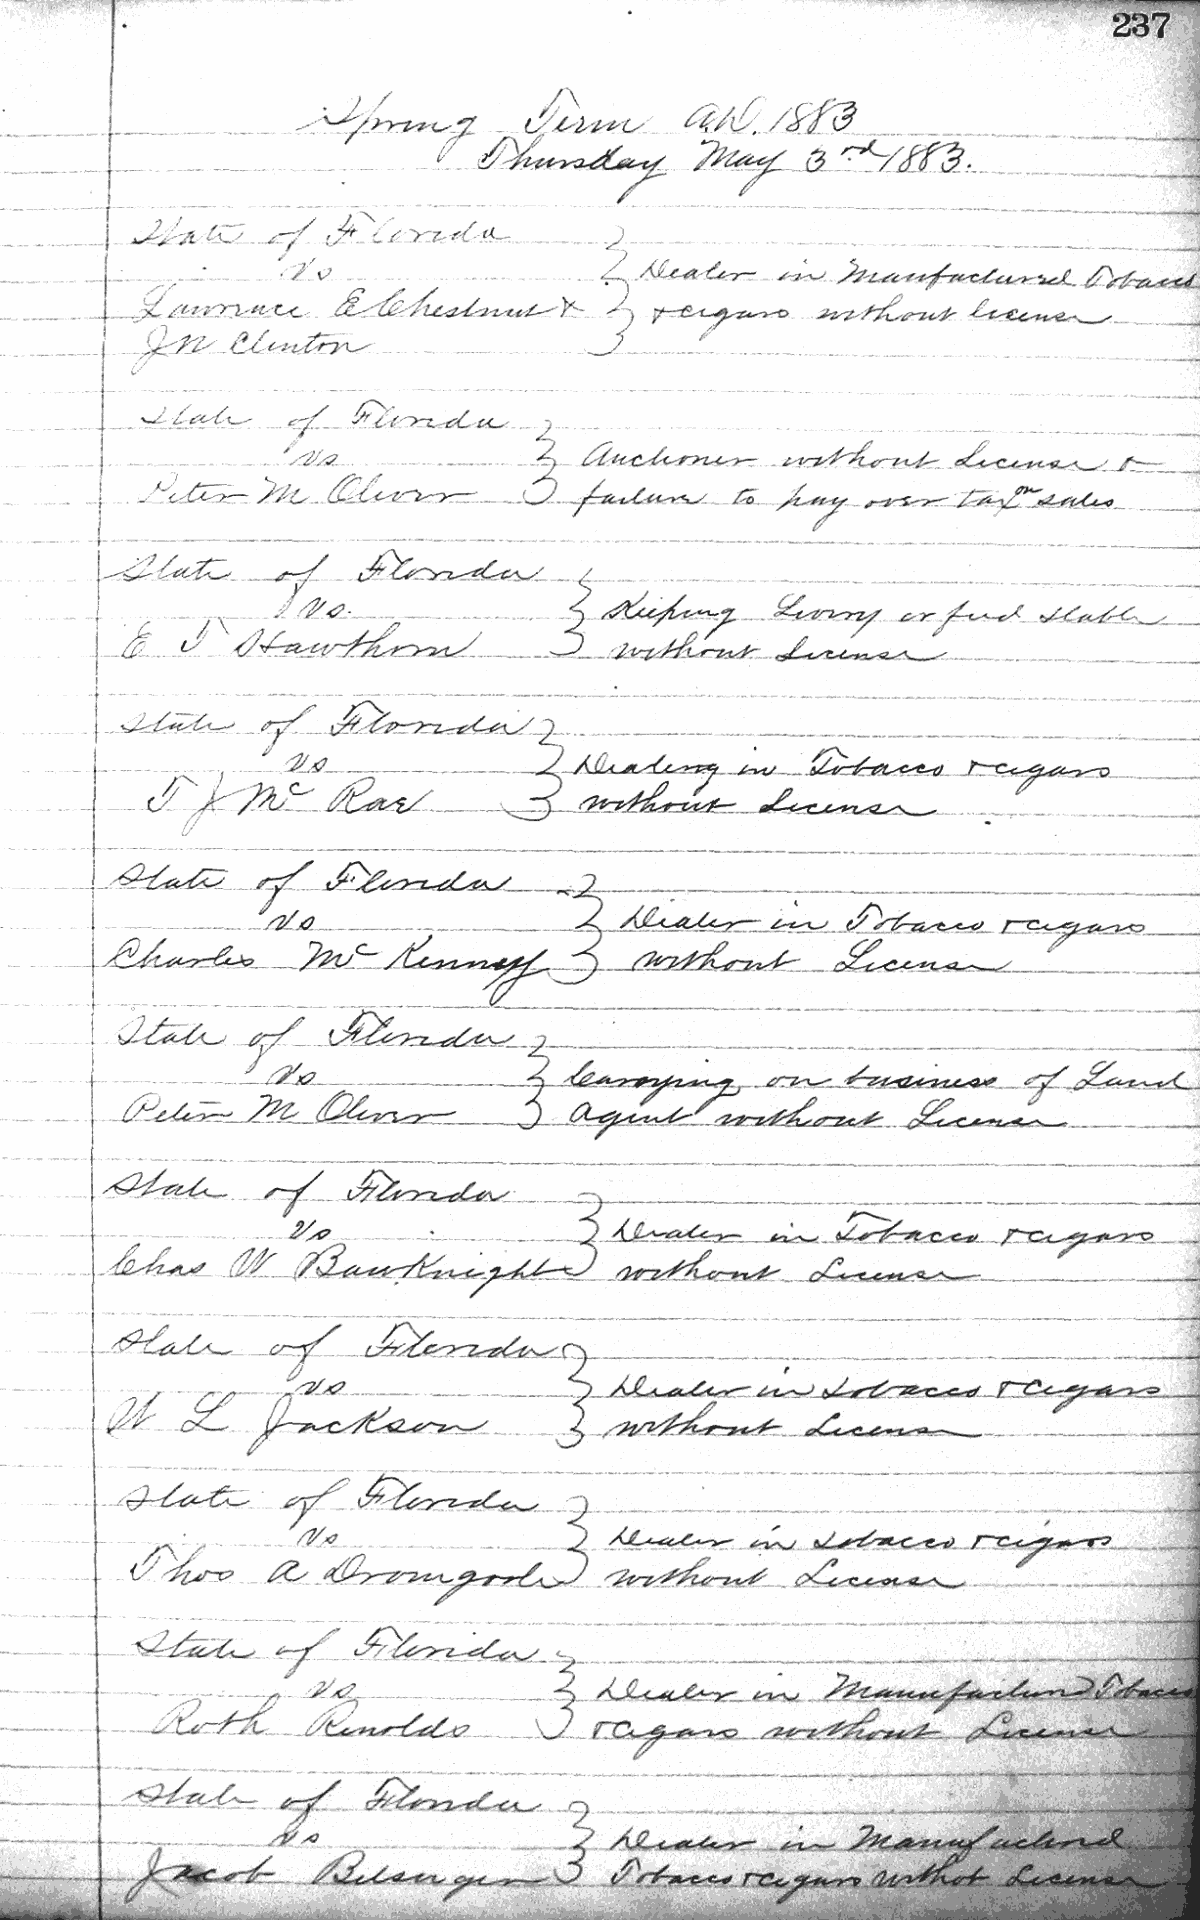 237
Spring Term A.D. 1883
Thursday May 3rd 1883.
State of Florida
vs
Dealer in Manufactured Tobacco
Lawrence E Chestnut &
& cigars without license
J N Clinton
State of Florida
vs
Auctioner without License &
Peter M Oliver
failure to pay over tax on sales
State of Florida
vs.
Keeping Livery or feed stable
E T Hawthorn
without License
State of Florida
vs
Dealing in Tobacco & cigars
T J Mc Rae
without License
State of Florida
vs
Dealer in Tobacco & cigars
Charles Mc Kenney
without License
State of Florida
vs
Carrying on business of Land
Peter M Oliver
Agent without License
State of Florida
vs
Dealer in Tobacco & cigars
Chas W Bauknight
without License
State of Florida
vs
Dealer in tobacco & cigars
W L Jackson
without License
State of Florida
vs
Dealer in tobacco & cigars
Thos A Dromgoole
without License
State of Florida
vs
Dealer in Manufactured Tobacco
Roth Renolds
& cigars without License
State of Florida
vs
Dealer in Manufactured
Jacob
Tobacco & cigars without License